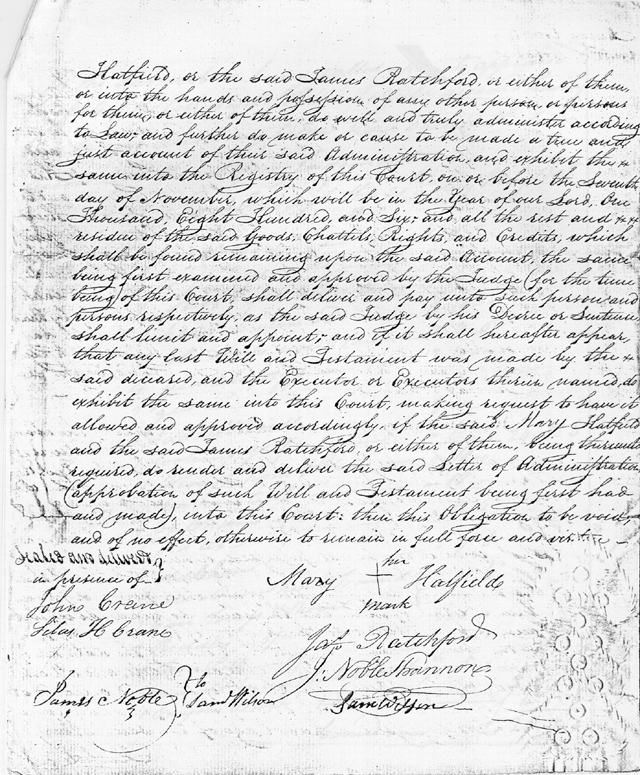 Hatfield, or the said James Ratchford, or either of them,
or into the hands and possession of any other person or persons
for them, or either of them, do well and truly administer according
to Law, and further do make or cause to be made a true and
just account of their said Administration, and exhibit the
same into the Registry of this Court, on or before the Seventh
day of November, which will be in the Year of our Lord, One
Thousand, Eight Hundred, and Six; and all the rest and
residue of the said Goods, Chattels, Rights, and Credits, which
shall be found remaining upon the said Account, the same
being first examined and approved by the Judge (for the time
being) of this Court, shall deliver and pay unto such person and
persons respectively, as the said Judge by his Decree or Sentence
shall limit and appoint; and if it shall hereafter appear,
that any last Will and Testament was made by the
said deceased, and the Executor or Executors therein named, do
exhibit the same into this Court, making request to have it
allowed and approved accordingly, if the said, Mary Hatfield
and the said James Ratchford, or either of them, being thereunto
required, do render and deliver the said Letter of Administration
(approbation of such Will and Testament being first had
and made), into this Court: then this Obligation to be void,
and of no effect, otherwise to remain in full force and virtue
Sealed and delivered
in presence of
her
Mary + Hatfield
mark
John Crane
Silas H Crane
Jas Ratchford
J. Noble Shannon
James Noble } to Saml Wilson
Sam Wilson